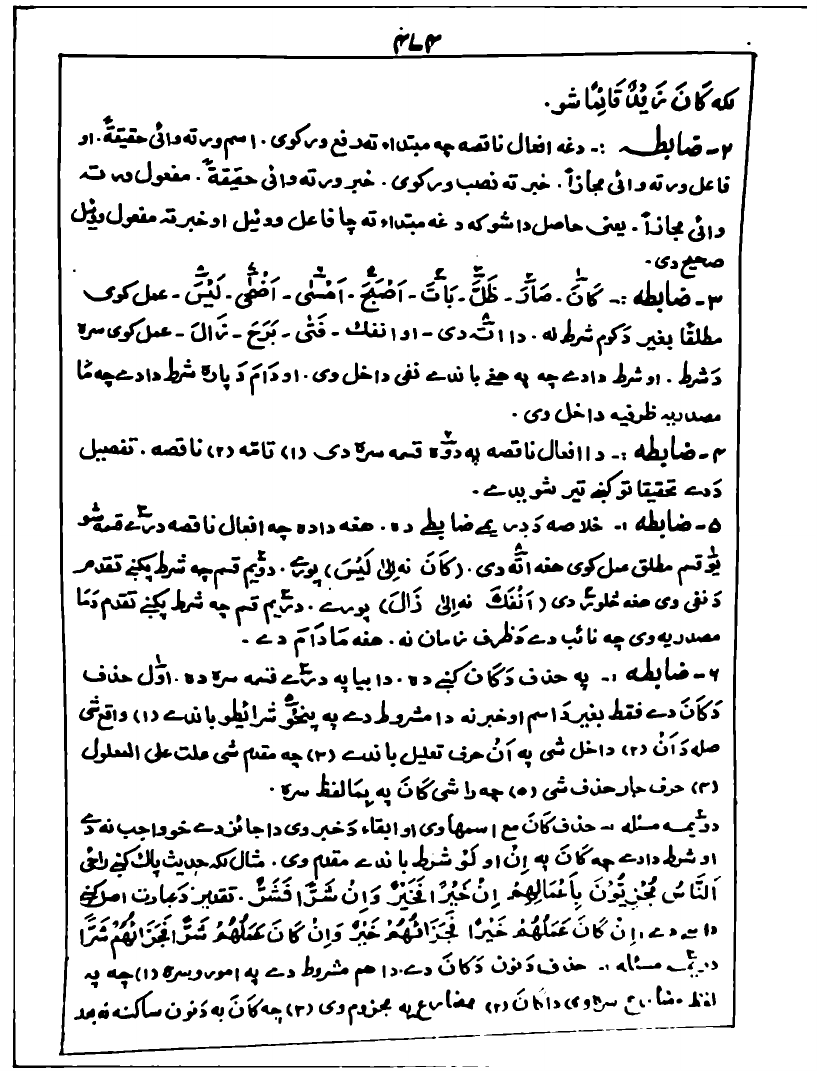 لکه کَانَ زَیۡدٌ قَائِمًا شو.
۲- ضابطه :- دغه افعال ناقصه چه مبتداء ته رفع ورکوی. اسم ورته وائی حقیقةً. او
فاعل ورته وائی مجازاً. خبر ته نصب ورکوی. خبر ورته وائی حقیقةً. مفعول ورته
وائی مجازاً. یعنی حاصل دا شو که دغه مبتداء ته چا فاعل ووئیل او خبر ته مفعول ووئیل
صحیح دی.
۳- ضابطه :- کَانَ - صَارَ - ظَلَّ - بَاتَ - اَصۡبَحَ - اَمۡسٰی - اَضۡحٰی - لَیۡسَ - عمل کوی
مطلقًا بغیر دَ کوم شرط نه. دا اته دی - او انفك - فَتٰی - بَرَحَ - زَالَ - عمل کوی سره
دَ شرط. او شرط دادے چه په هغے باندے نفی داخل وی. او دَامَ دَ پاره شرط دادے چه مَا
مصدریه ظرفیه داخل وی.
۴- ضابطه :- دا افعال ناقصه په دوه قسمه سره دی (۱) تامّه (۲) ناقصه. تفصیل
دَدے تحقیقاتو کښے تیر شویدے.
۵- ضابطه :- خلاصه دَ دریمے ضابطے ده. هغه داده چه افعال ناقصه درے قسمه شو
یو قسم مطلق عمل کوی هغه اته دی. (کَانَ نه اِلیٰ لَیۡسَ) پورے. دویم قسم چه شرط پکښے تقدم
دَ نفی وی هغه څلور دی (اَنۡفَكَّ نه اِلیٰ زَالَ) پورے. دریم قسم چه شرط پکښے تقدم دَ مَا
مصدریه وی چه نائب دے دَ ظرف زمان نه. هغه مَا دَامَ دے.
۶- ضابطه :- په حذف دَ کَان کښے ده. دا بیا په درے قسمه سره ده. اوّل حذف
دَ کَانَ دے فقط بغیر دَ اسم او خبر نه دا مشروط دے په پنځو شرائطو باندے (۱) واقع شی
صله دَ اَنۡ (۲) داخل شی په اَنۡ حرف تعلیل باندے (۳) چه مقدم شی علت علی المعلول
(۴) حرف جار حذف شی (۵) چه راشی کَانَ په بِمَا لفظ سره.
دویمه مسئله :- حذف کَانَ مع اسمها وی او ابقاء دَ خبر وی دا جائز دے خو واجب نه دے
او شرط دادے چه کَانَ په اِنۡ او لَوۡ شرط باندے مقدم وی. مثال لکه حدیث پاك کښے راځی
اَلنَّاسُ مَجۡزِیُّوۡنَ بِاَعۡمَالِهِمۡ اِنۡ خَیۡرًا فَخَیۡرٌ وَاِنۡ شَرًّا فَشَرٌّ. تقدیر دَ عبارت اصل کښے
داسے دے، اِنۡ کَانَ عَمَلُهُمۡ خَیۡرًا فَجَزَائُهُمۡ خَیۡرٌ وَاِنۡ کَانَ عَمَلُهُمۡ شَرًّا فَجَزَائُهُمۡ شَرًّا
دریمه مسئله :- حذف دَ نون دَ کَانَ دے. دا هم مشروط دے په امورو سره (۱) چه په
لفظ مضارع سره وی دا کَانَ (۲) مضارع به مجزوم وی (۳) چه کَانَ به دَ نون ساکنه نه بعد